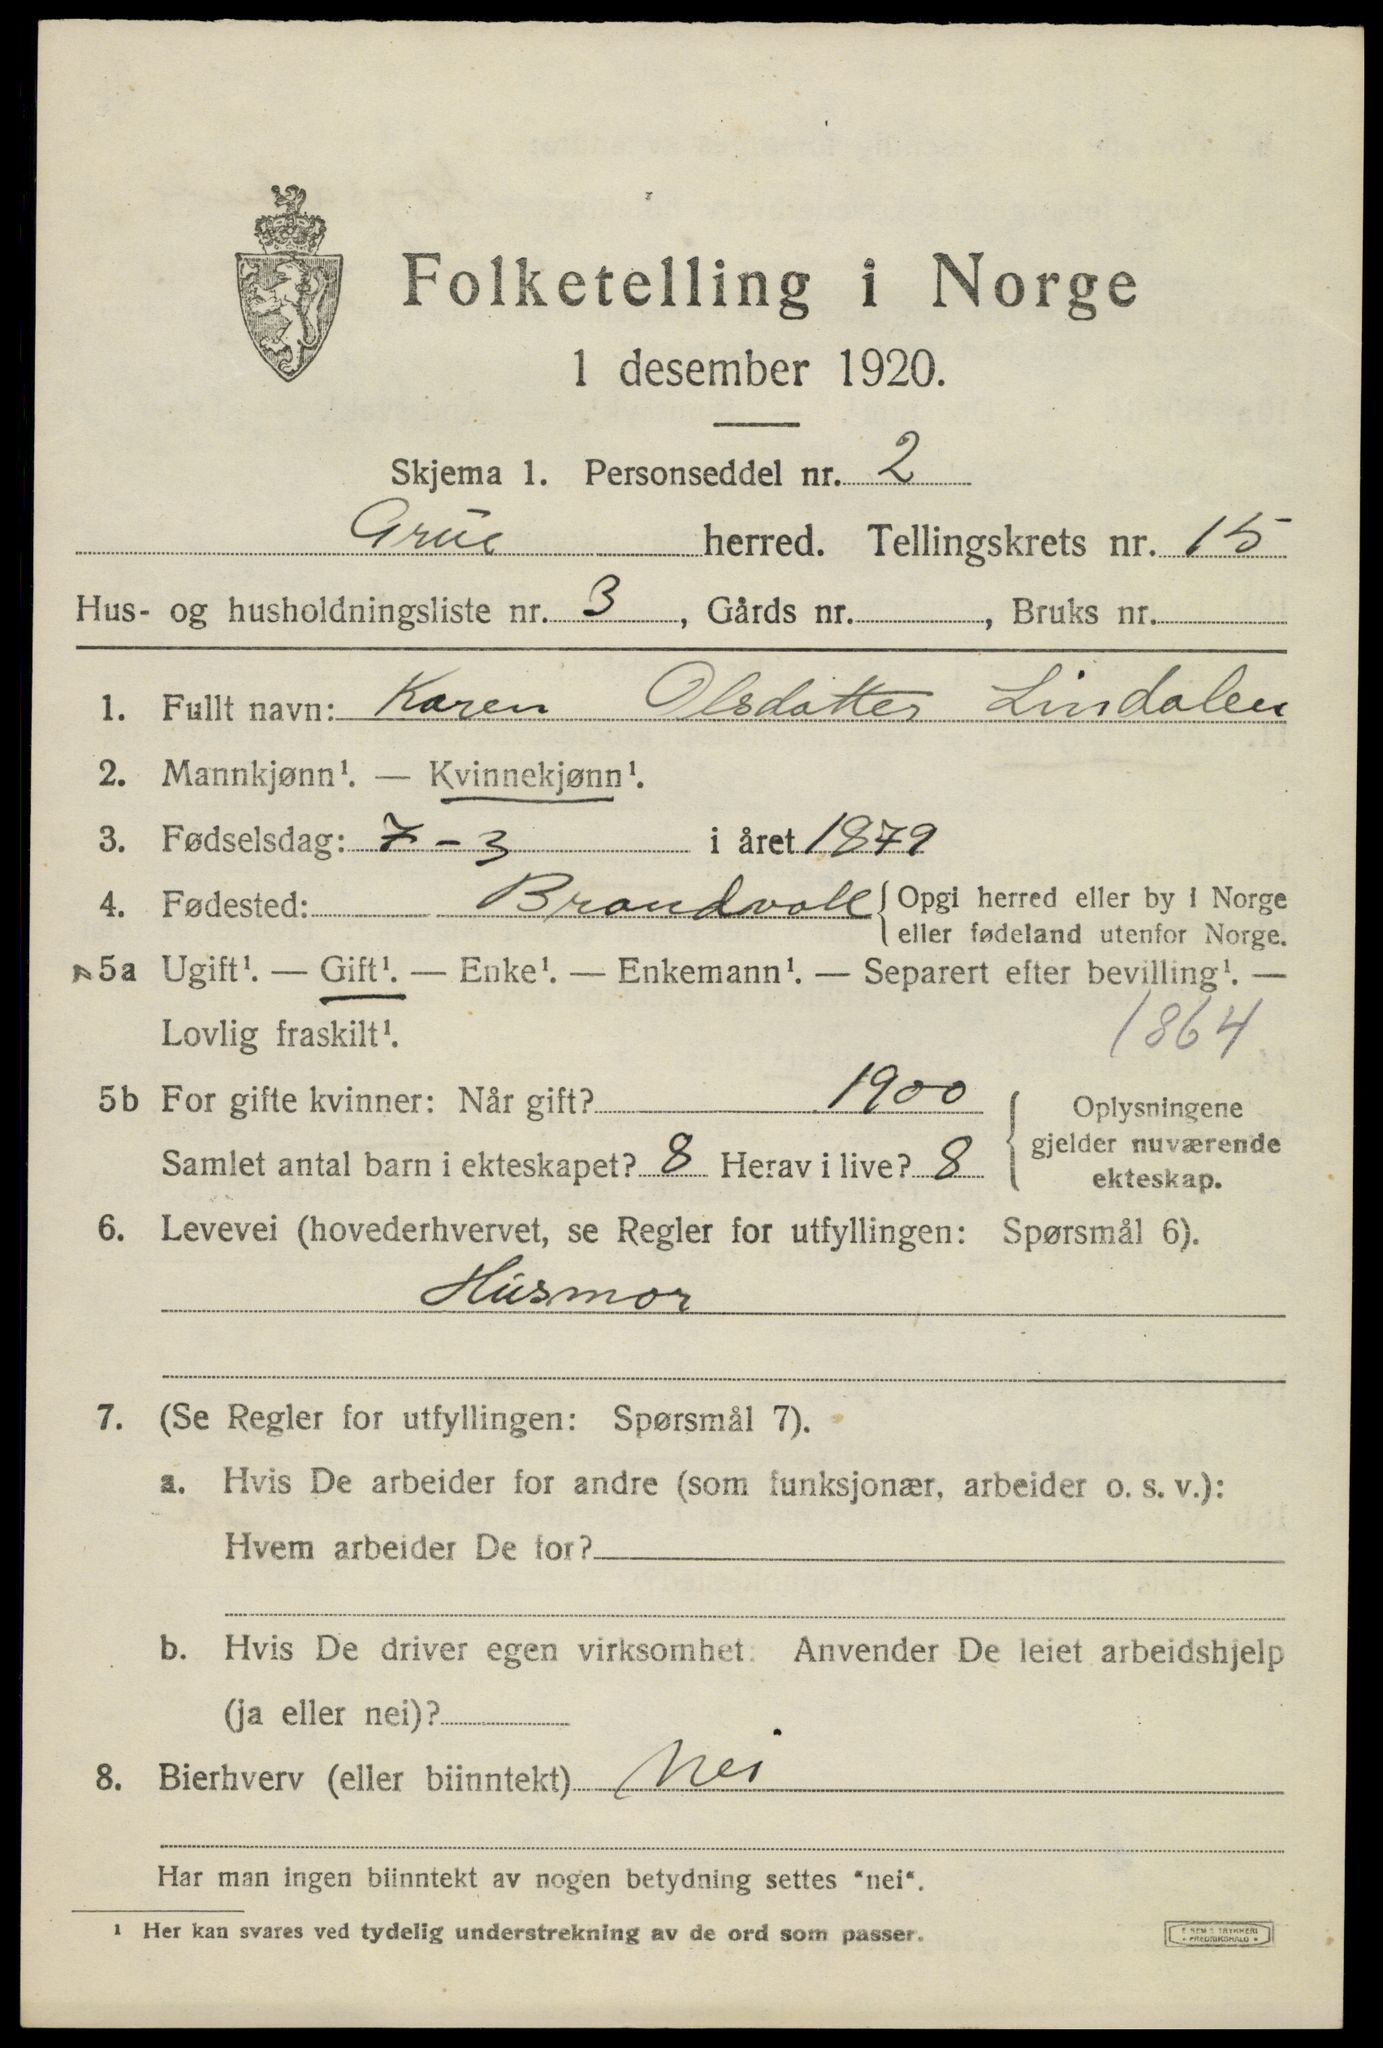 Folketelling i Norge
1 desember 1920.
Skjema 1. Personseddel nr. 2
Grue herred. Tellingskrets nr. 15
Hus- og husholdningsliste nr. 3, Gårds nr. , Bruks nr.
1. Fullt navn: Karen Olsdatter Lindalen
2. Mannkjønn¹. — Kvinnekjønn¹.
3. Fødselsdag: 7-3 i året 1879
4. Fødested: Brandvall { Opgi herred eller by i Norge
eller fødeland utenfor Norge.
5a Ugift¹. — Gift¹. — Enke¹. — Enkemann¹. — Separert efter bevilling¹. —
Lovlig fraskilt¹. 1864
5b For gifte kvinner: Når gift? 1900
Samlet antal barn i ekteskapet? 8 Herav i live? 8
Oplysningene
gjelder nuværende
ekteskap.
6. Levevei (hovederhvervet, se Regler for utfyllingen: Spørsmål 6).
Husmor
7. (Se Regler for utfyllingen: Spørsmål 7).
a. Hvis De arbeider for andre (som funksjonær, arbeider o. s. v.):
Hvem arbeider De for?
b. Hvis De driver egen virksomhet: Anvender De leiet arbeidshjelp
(ja eller nei)?
8. Bierhverv (eller biinntekt) Nei
Har man ingen biinntekt av nogen betydning settes "nei".
¹ Her kan svares ved tydelig understrekning av de ord som passer.
TRYKKERI
FREDRIKSHALD